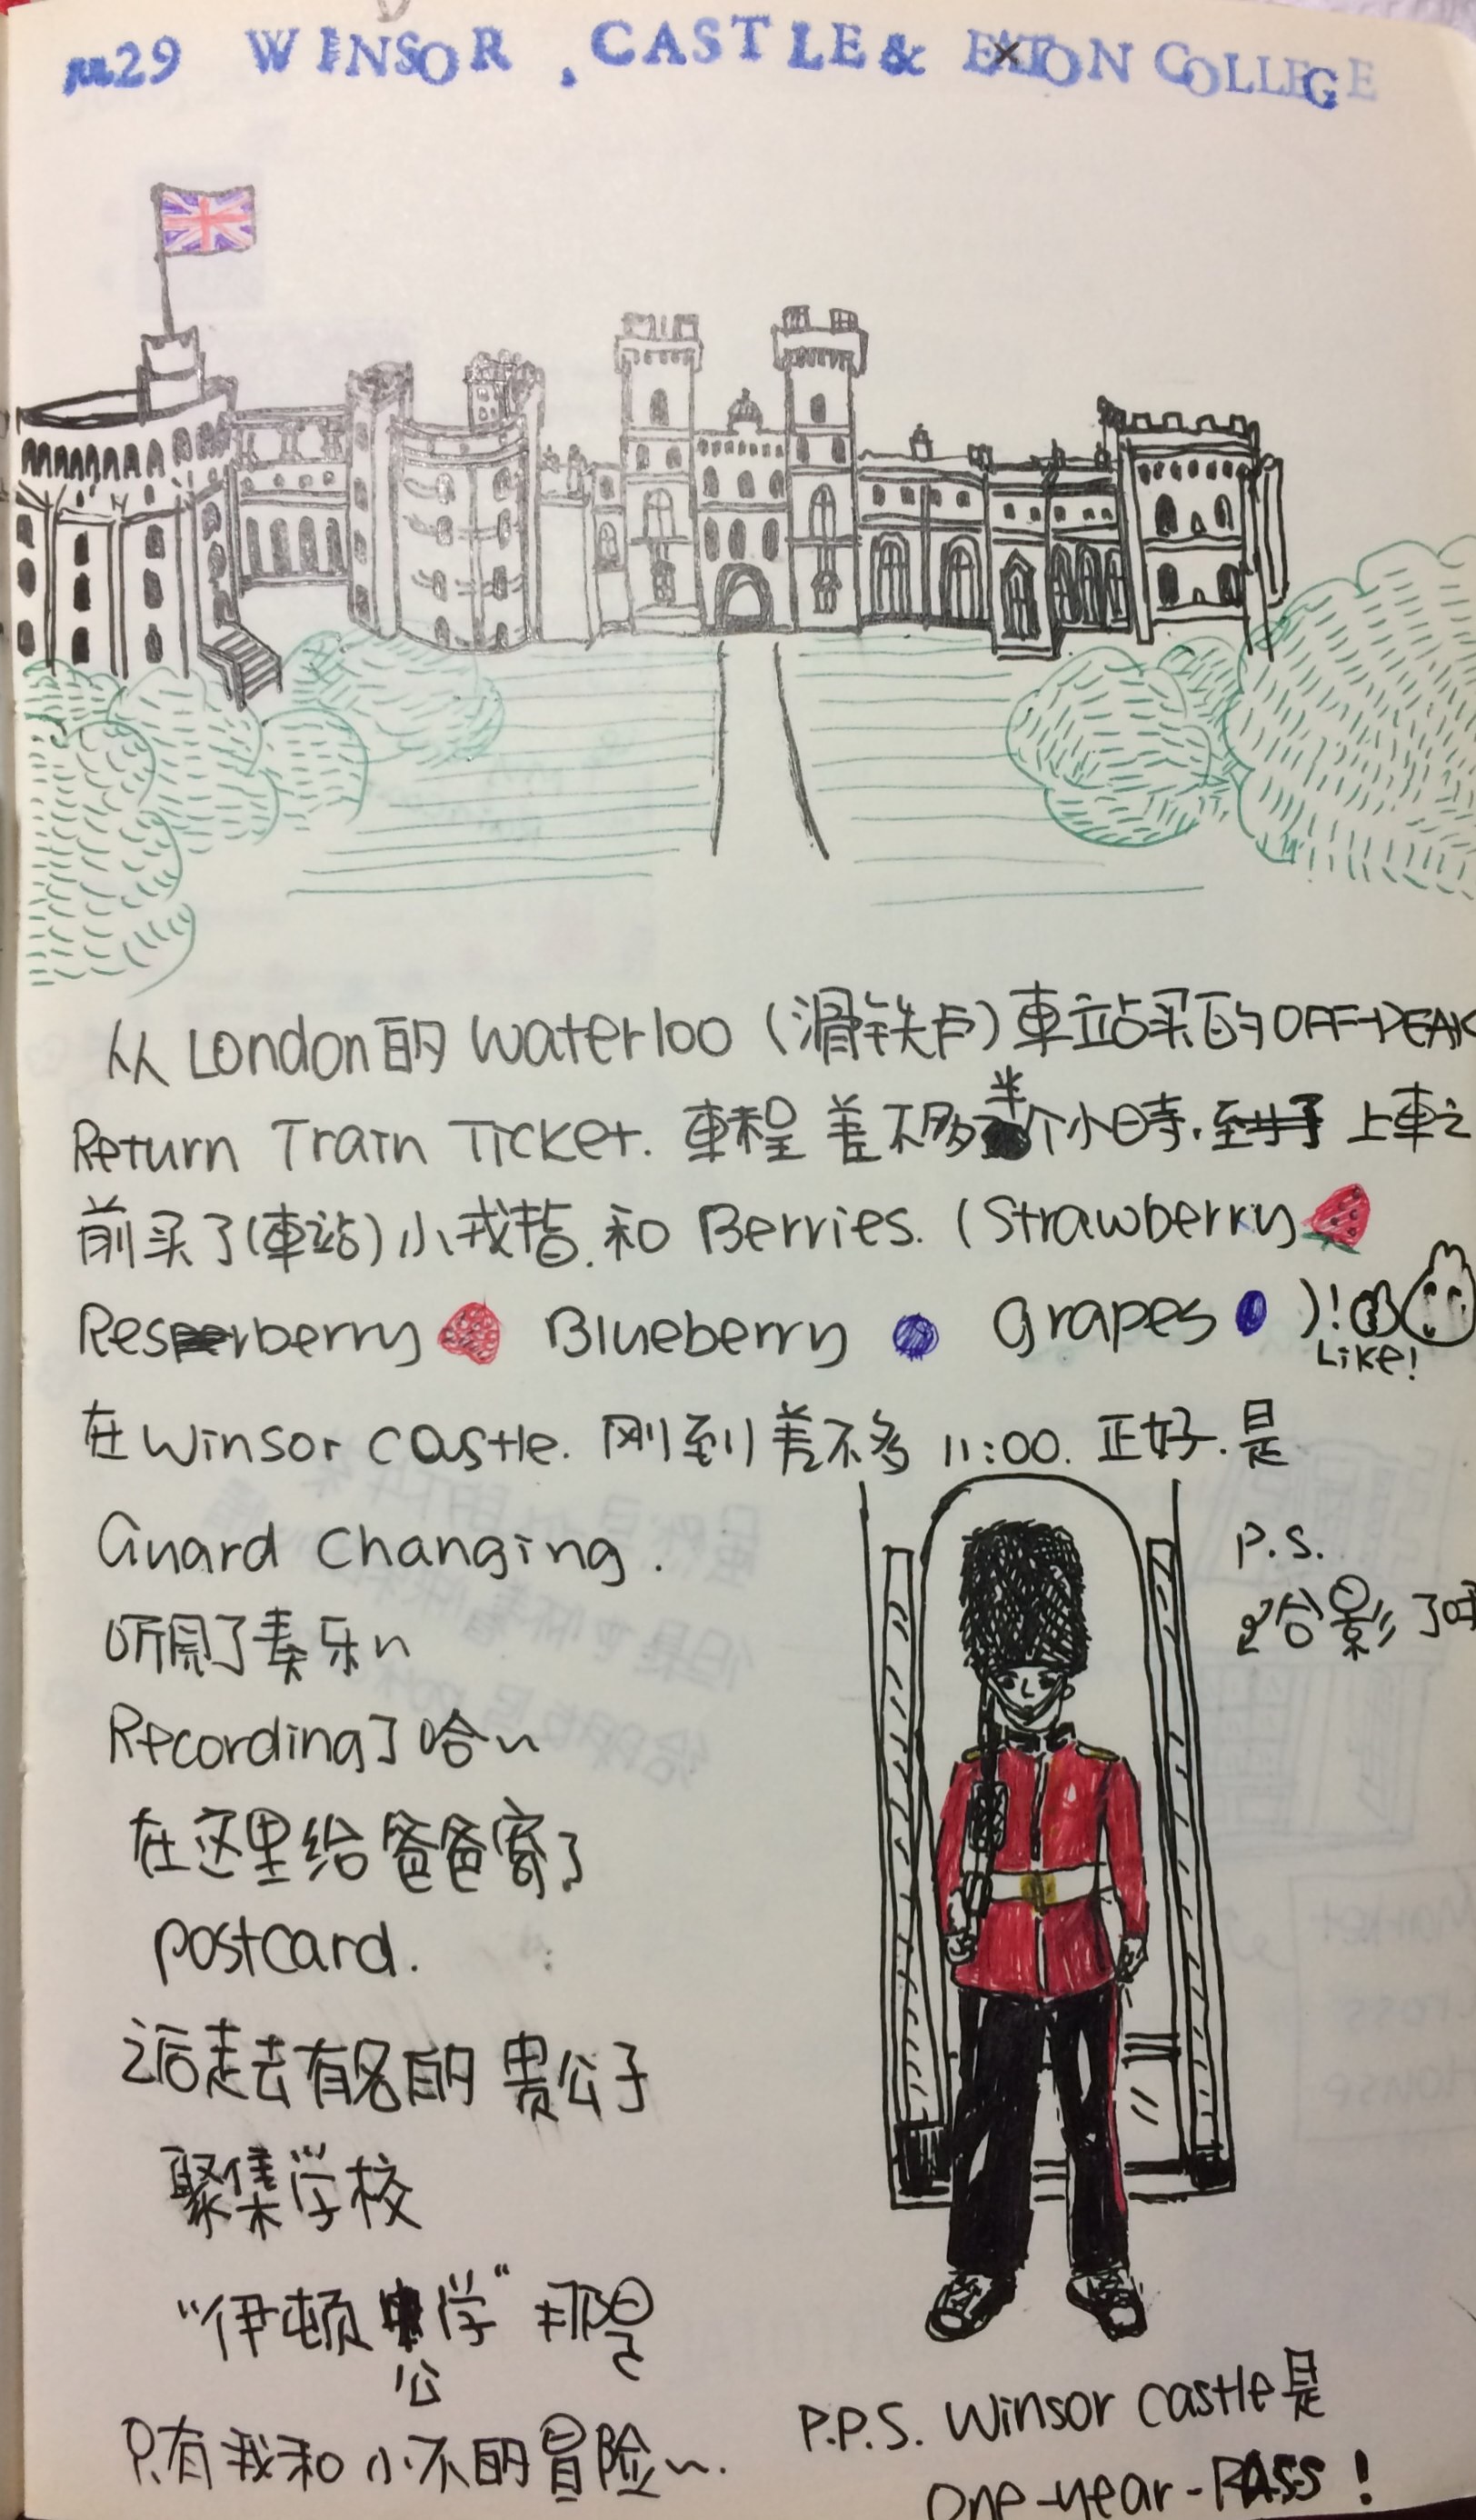 29 WINSOR. CASTLE & EATON COLLEGE
从London的 Waterloo (滑铁卢) 車站买的OFF-PEAK
Return Train Ticket. 車程 差不多半个小時. 上車之
前买了(車站)小戒指.和 Berries. (Strawberry
Resperberry Blueberry grapes )!
Like!
在Winsor castle. 刚到差不多 11:00. 正好.是
Guard Changing.
P.S.
合影了
听见了奏乐~
Recording了哈~
在这里给爸爸寄了
postcard.
之后走去有名的 贵公子
聚集学校
“伊顿公学” 那是
只有我和小不的冒险~.
P.P.S. Winsor castle是
One-year-PASS!